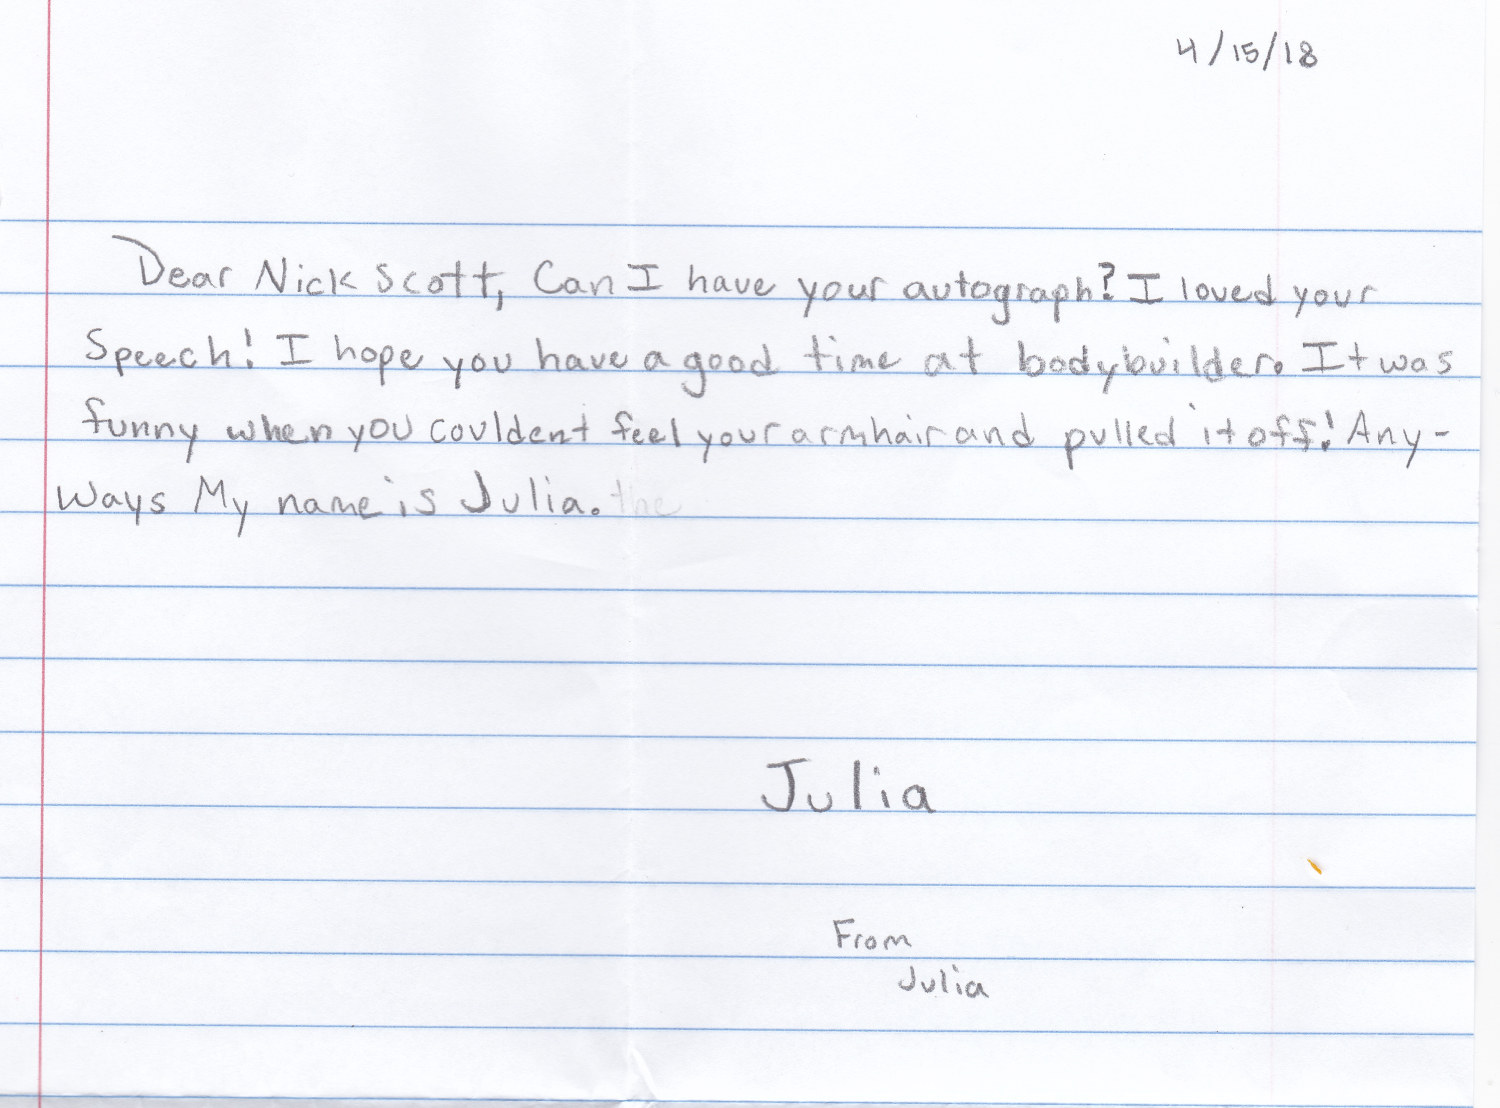 4/15/18
Dear Nick Scott, Can I have your autograph? I loved your
Speech! I hope you have a good time at bodybuilder. It was
funny when you couldent feel your armhair and pulled it off! Any-
ways My name is Julia. the
Julia
From
Julia